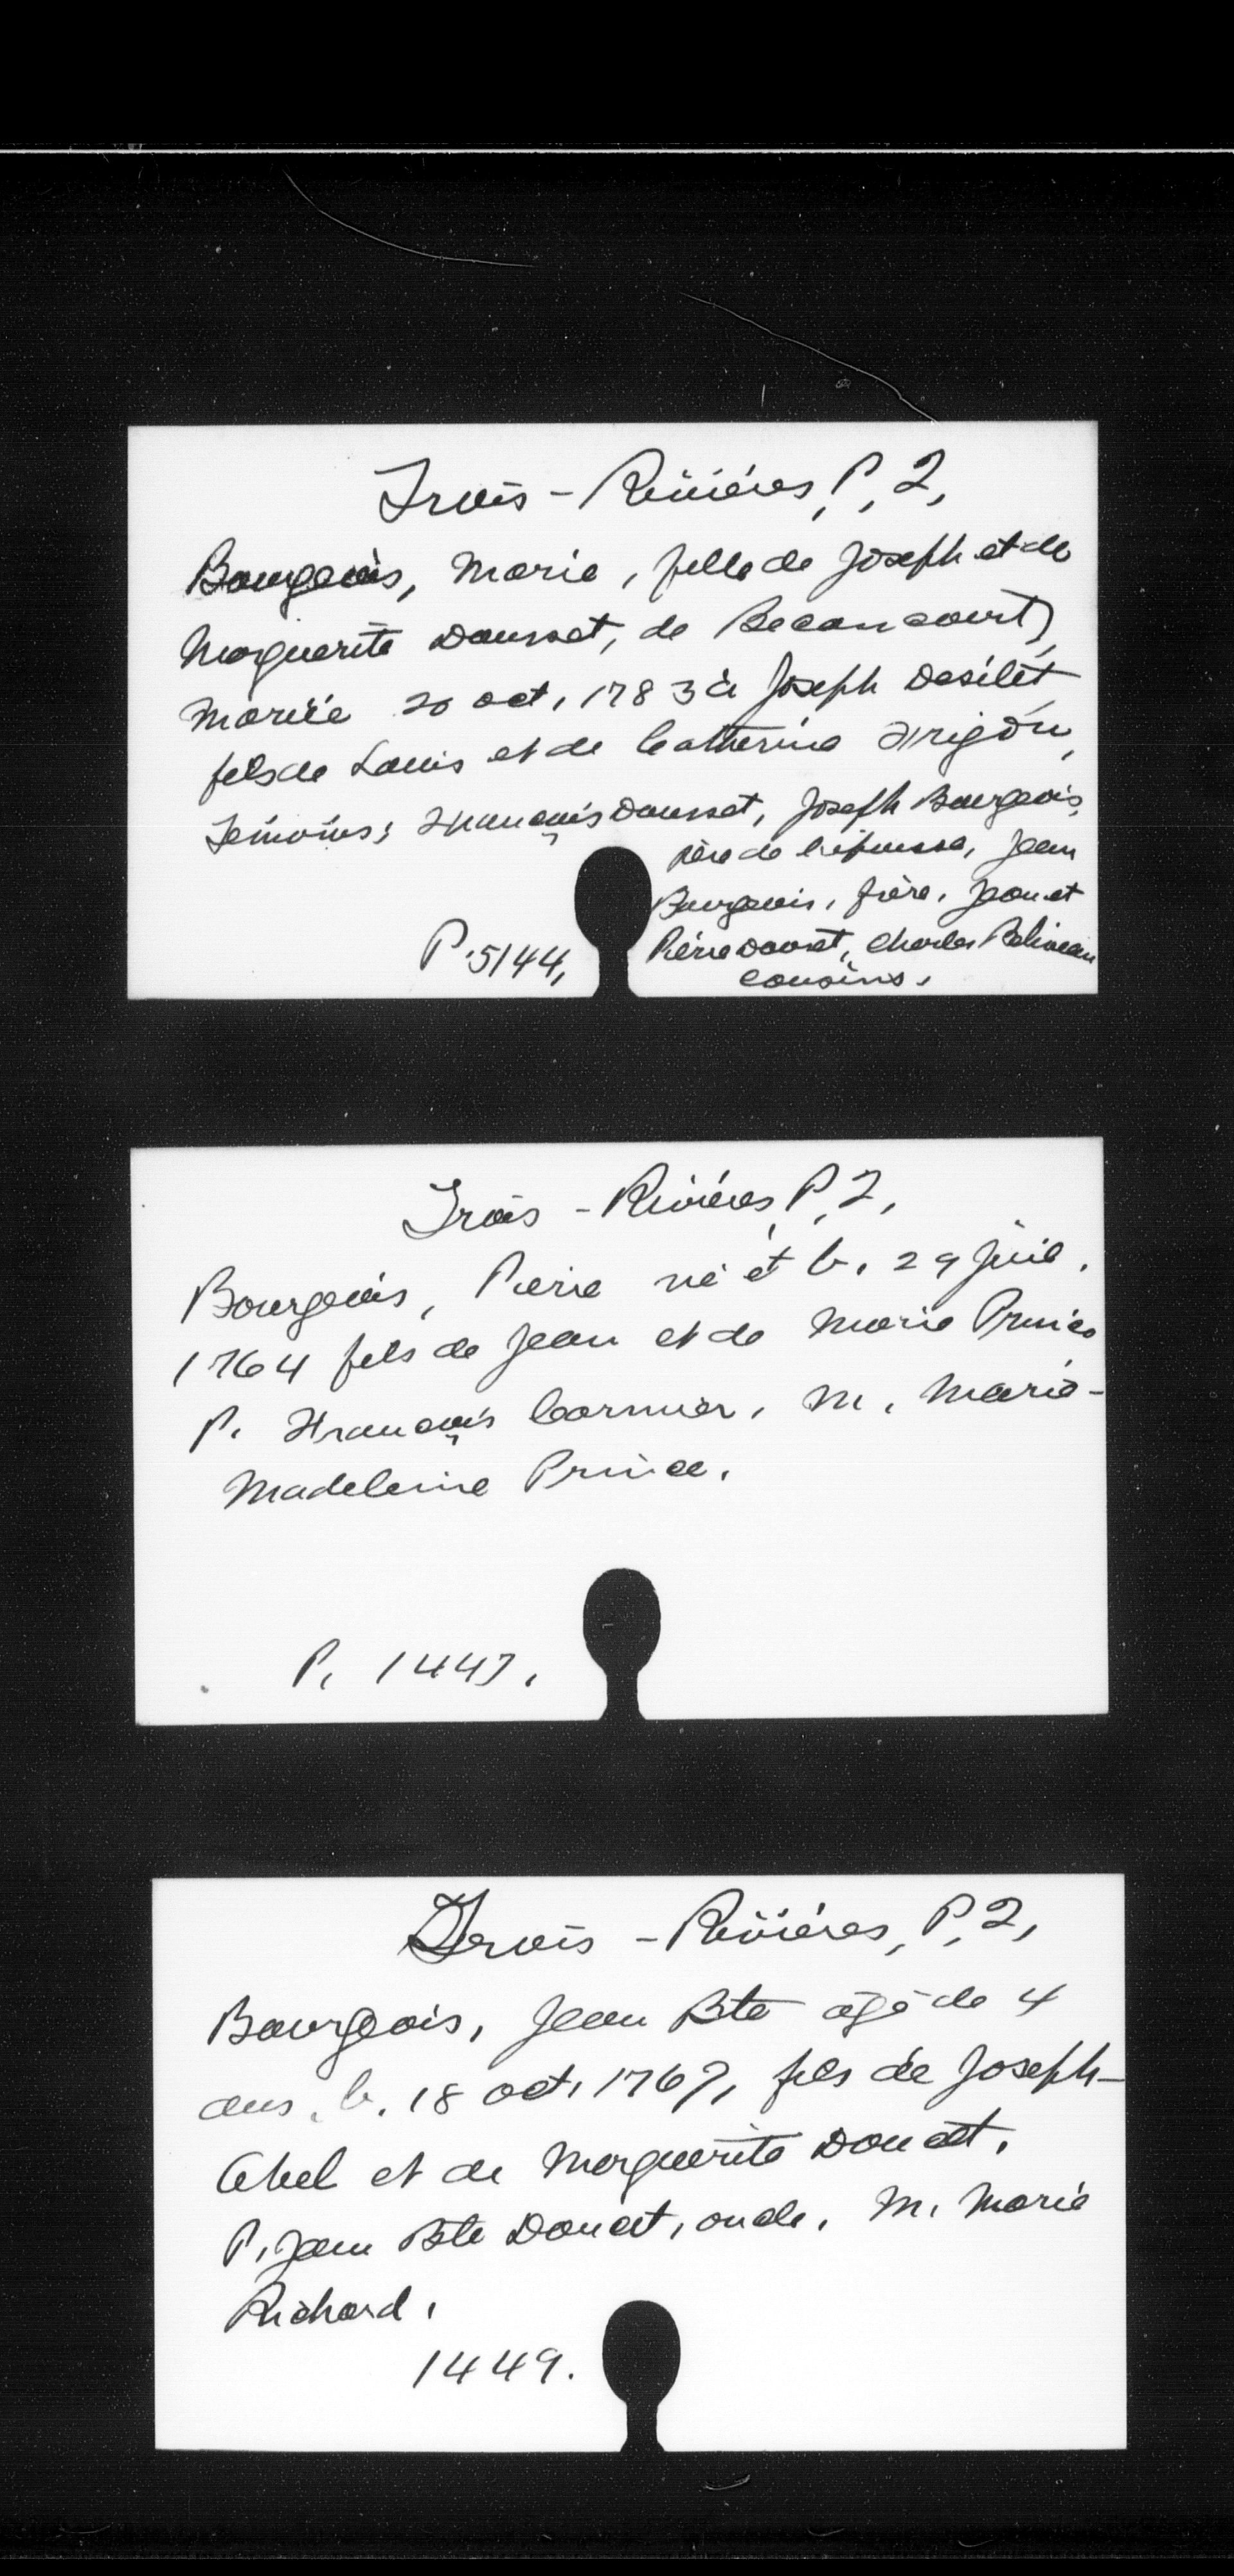 Trois-Rivières, P. 2,
Bourgeois, Marie, fille de Joseph et de
Marguerite Dousset, de Becancourt,
Mariée 20 oct, 1783 à Joseph Desilet
fils de Louis et de Catherine
Temoins; François Dousset, Joseph Bourgeois,
père de l'épousse, Jean
Bourgeois, frère, Jean et
Pierre Doucet, Charles
cousins.
P. 5144,
Trois-Rivières, P. 2,
Bourgeois, Pierre né et b. 29 juil.
1764 fils de Jean et de Marie Prince
P. François Cormier, M. Marie-
Madeleine Prince.
P. 1447.
Trois-Rivières, P. 2,
Bourgeois, Jean Bte âgé de 4
ans, b. 18 oct, 1767, fils de Joseph-
Abel et de Marguerite Doucet,
P. Jean Bte Doucet, oncle, M. Marie
Richard.
1449.